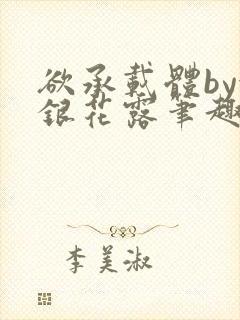 欲承載體by
銀花露筆趣
李美淑